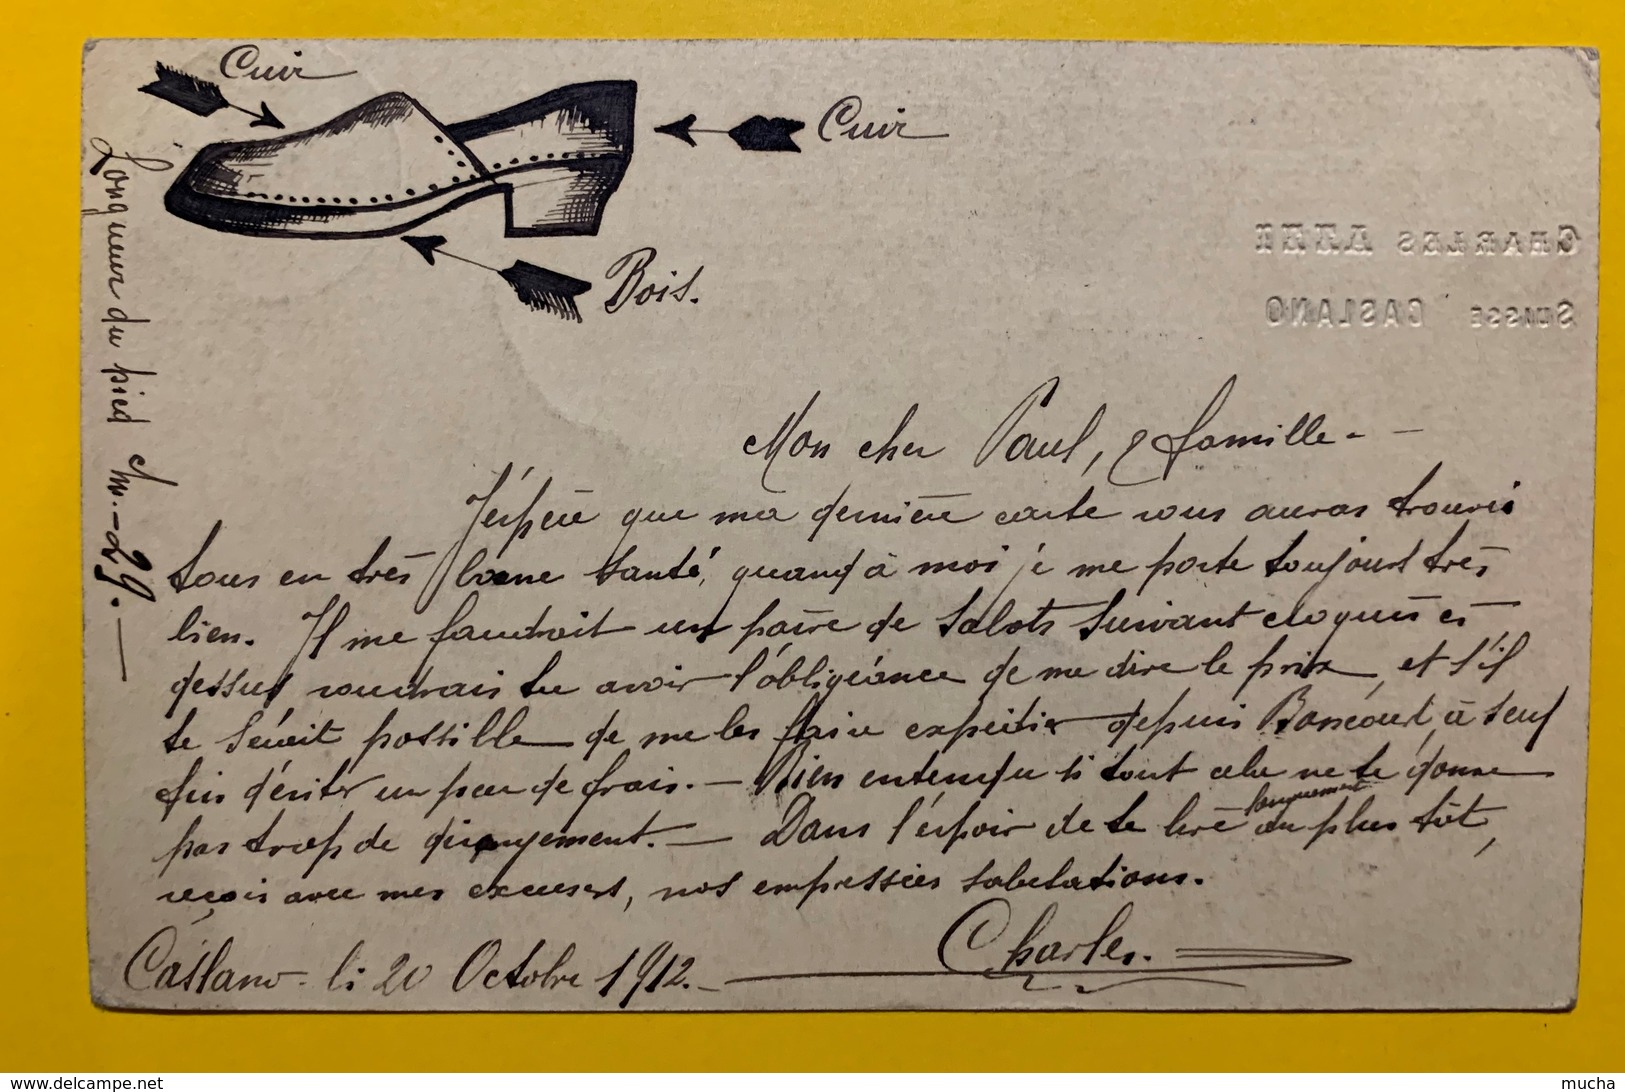 Cuir
Cuir
Bois.
Longueur du pied cm.-29.-
CHARLES
SUISSE CASLANO
Mon cher Paul, & famille.-
J'éspère que ma dernière carte vous auras trouvés
tous en très bonne santé, quand à moi je me porte toujours très
bien. Il me faudrait un paire de Sabots suivant croquis ci-
dessus voudrais tu avoir l'obligéance de me dire le prix, et s'il
te serait possible de me les faire expedier depuis Boncourt, à seul
fin d'éviter un peu de frais.- Bien entendu si tout cela ne te donne
pas trop de dérangement.- Dans l'éspoir de te lire longuement au plus tôt,
reçois avec mes excuses, nos empressées salutations.
Charles.
Caslano - li 20 Octobre 1912.-
delcampe.net
mucha